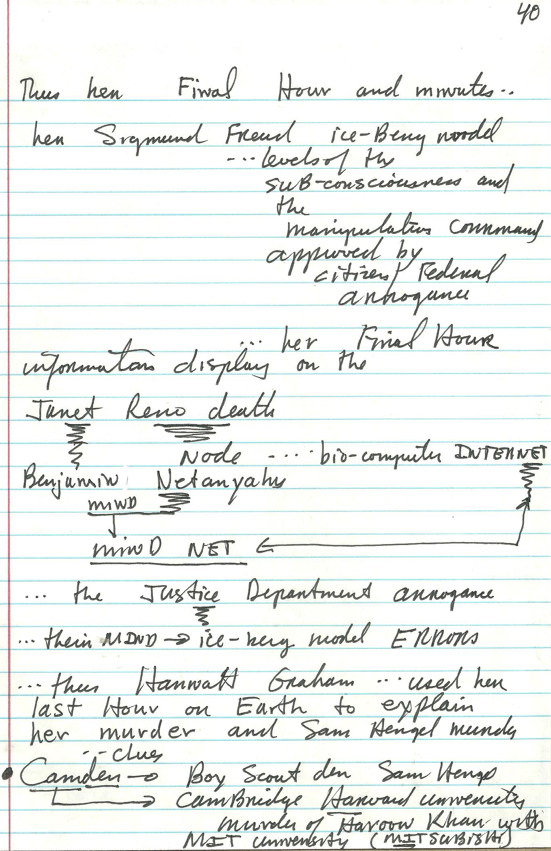 40
Thus her Final Hour and minutes..
her Sigmund Freud ice-Berg model
... levels of the
sub-consciousness and
the
manipulation command
approved by
citizens/ Federal
arrogance
... her Final Hour
information display on the
Janet Reno death
Node .... bio-computer INTERNET
Benjamin Netanyahu
minD
minD NET
... the Justice Department arrogance
... their MIND → ice-berg model ERRORS
... thus Graham ... used her
last Hour on Earth to explain
her murder and Sam
... clues
Camden → Boy Scout den Sam
CamBridge Harvard university
murder of Haroon Khan with
MIT university (MITSUBISHI)